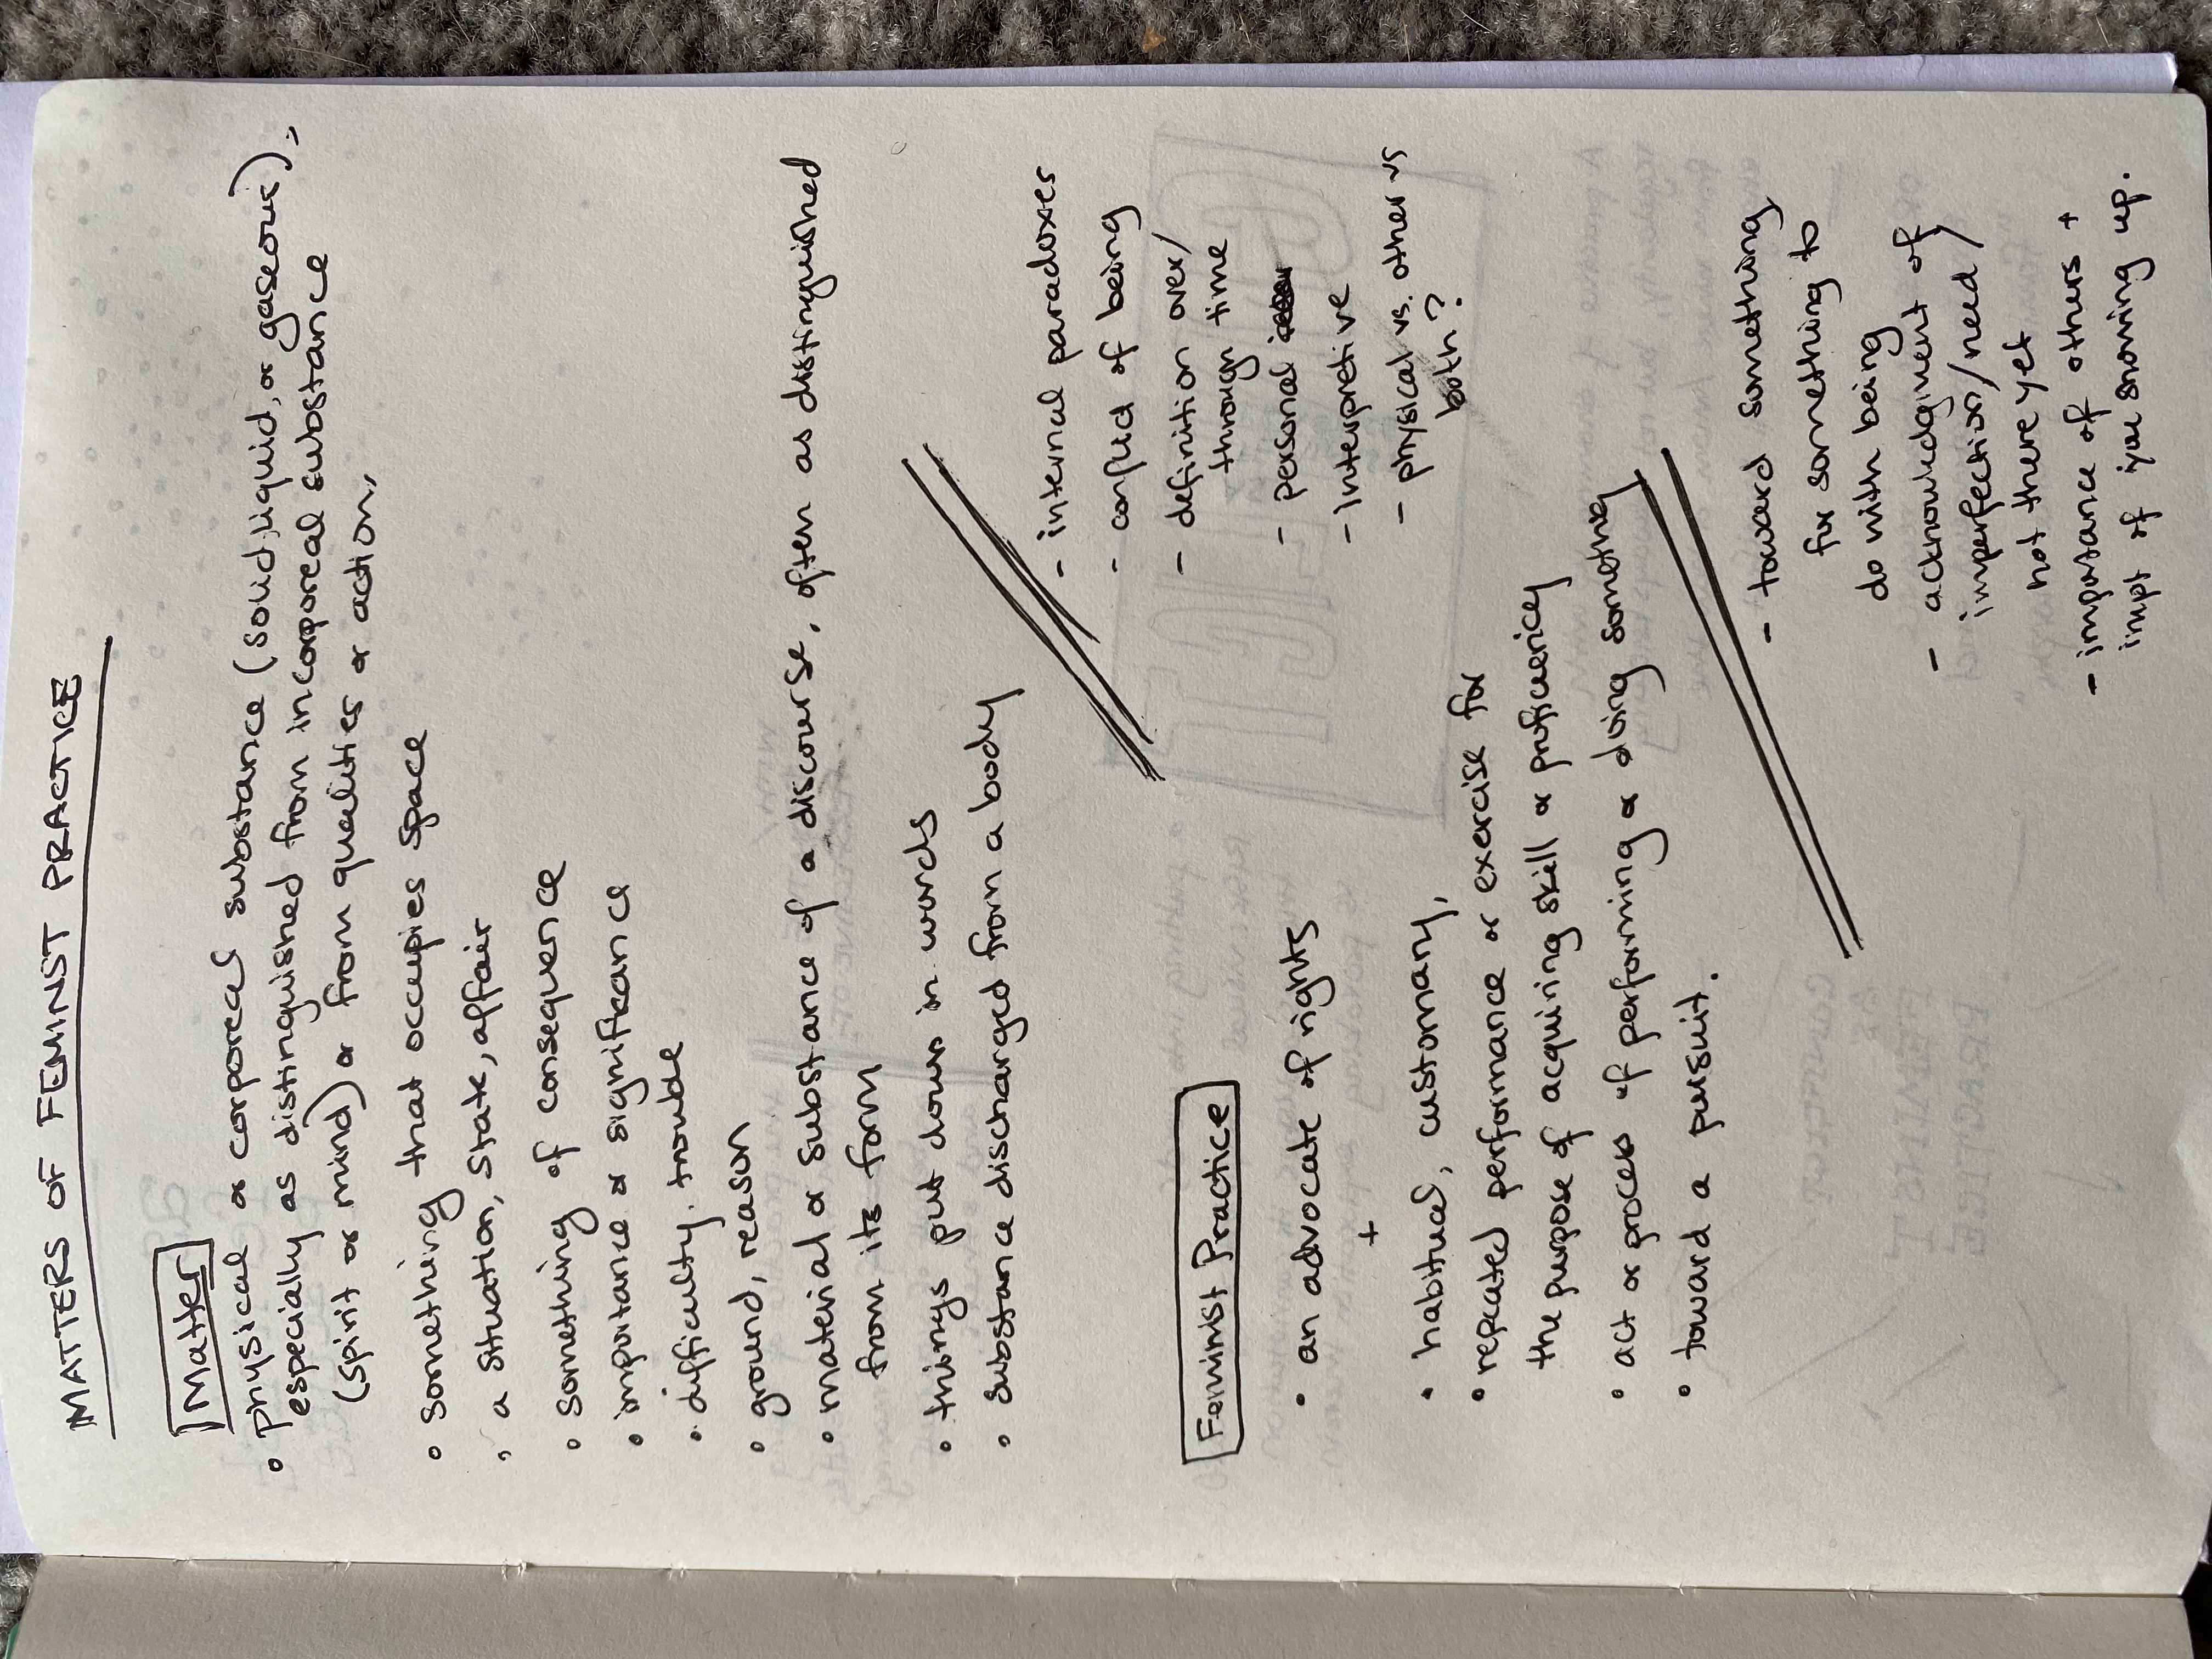 MATTERS OF FEMINIST PRACTICE
Matter
• physical or corporeal substance (solid, liquid, or gaseous),
especially as distinguished from incorporeal substance
(spirit or mind) or from qualities or action,
• something that occupies space
• a situation, state, affair
• something of consequence
• importance or significance
• difficulty. trouble
• ground, reason
• material or substance of a discourse, often as distinguished
from its form
• things put down in words
• substance discharged from a body
- internal paradoxes
- of being
- definition over/
through time
- personal
- Interpretive
- physical vs. other vs
both?
Feminist Practice
• an advocate of rights
+
• habitual, customary,
• repeated performance or exercise for
the purpose of acquiring skill or proficiency
• act or process of performing or doing something
• toward a pursuit.
- toward something
for something to
do with being
- acknowledgment of
imperfection/need/
not there yet
- importance of others +
impt of you showing up.